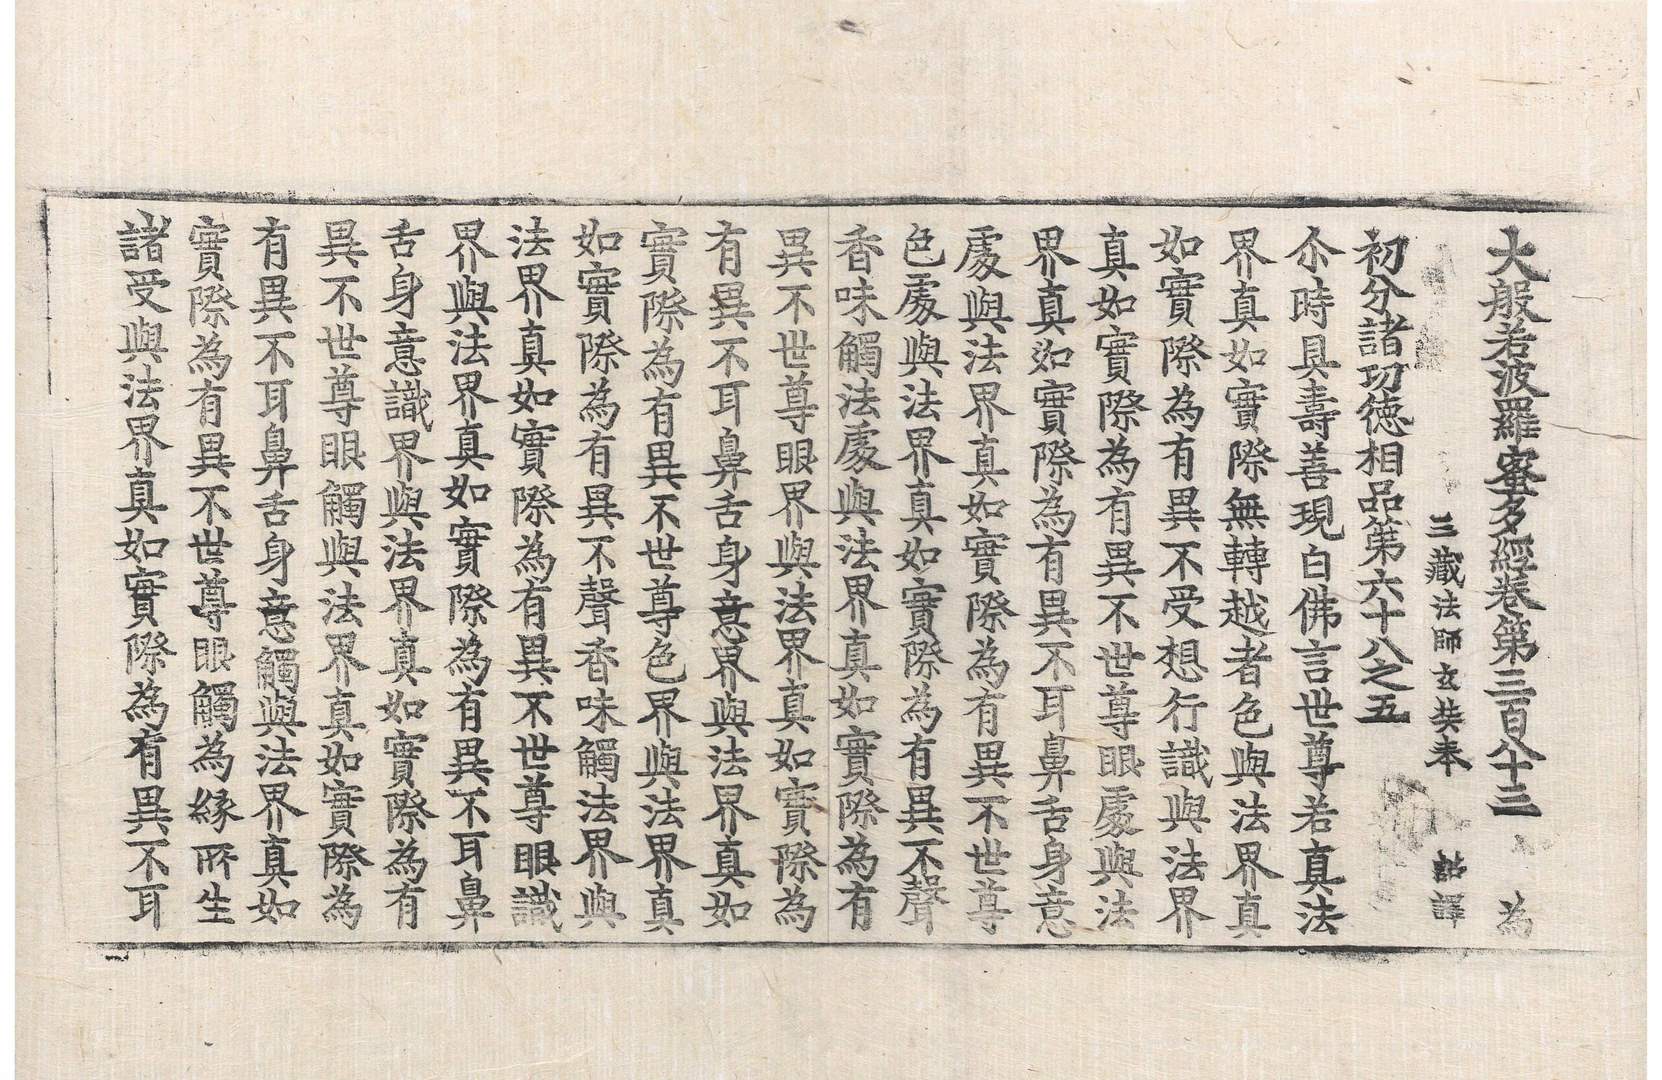 大般若波羅蜜多經卷第三百八十三 為
三藏法師玄奘奉 詔譯
初分諸功德相品第六十八之五
尒時具壽善現白佛言世尊若真法
界真如實際無轉越者色與法界真
如實際為有異不受想行識與法界
真如實際為有異不世尊眼處與法
界真如實際為有異不耳鼻舌身意
處與法界真如實際為有異不世尊
色處與法界真如實際為有異不聲
香味觸法處與法界真如實際為有
異不世尊眼界與法界真如實際為
有異不耳鼻舌身意界與法界真如
實際為有異不世尊色界與法界真
如實際為有異不聲香味觸法界與
法界真如實際為有異不世尊眼識
界與法界真如實際為有異不耳鼻
舌身意識界與法界真如實際為有
異不世尊眼觸與法界真如實際為
有異不耳鼻舌身意觸與法界真如
實際為有異不世尊眼觸為緣所生
諸受與法界真如實際為有異不耳